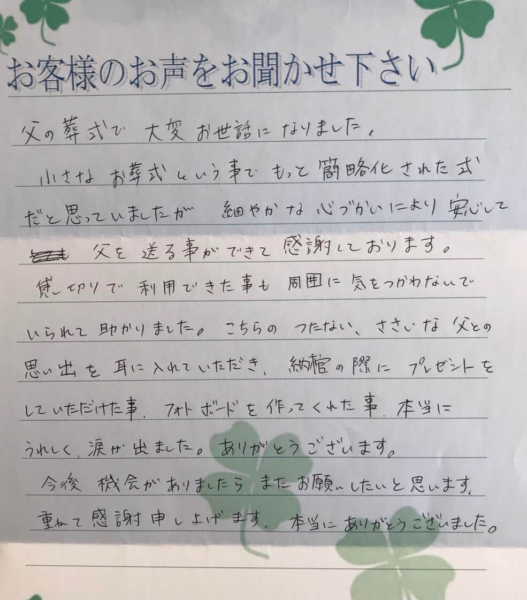 お客様のお声をお聞かせ下さい
父の葬式で 大変 お世話に なりました。
小さな お葬式という事で もっと 簡略化された式
だと思っていましたが 細やかな 心づかいにより 安心して
父を 送る事ができて 感謝しております。
貸し切りで 利用できた事も 周囲に 気をつかわないで
いられて 助かりました。こちらの つたない、ささいな 父との
思い出を 耳に入れていただき、納棺の際に プレゼントを
していただけた事、フォトボードを作ってくれた事、本当に
うれしく、涙が出ました。ありがとうございます。
今後 機会がありましたら またお願いしたいと思います。
重ねて 感謝申し上げます。本当に ありがとうございました。